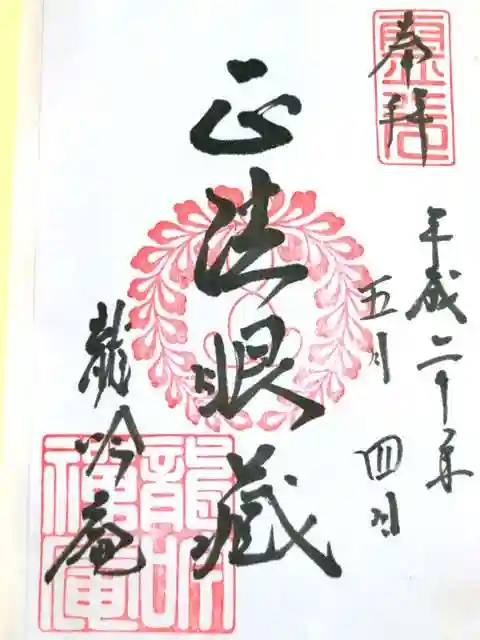 奉拝
平成二十年
五月
四日
正法眼藏
龍吟庵
龍吟禪庵